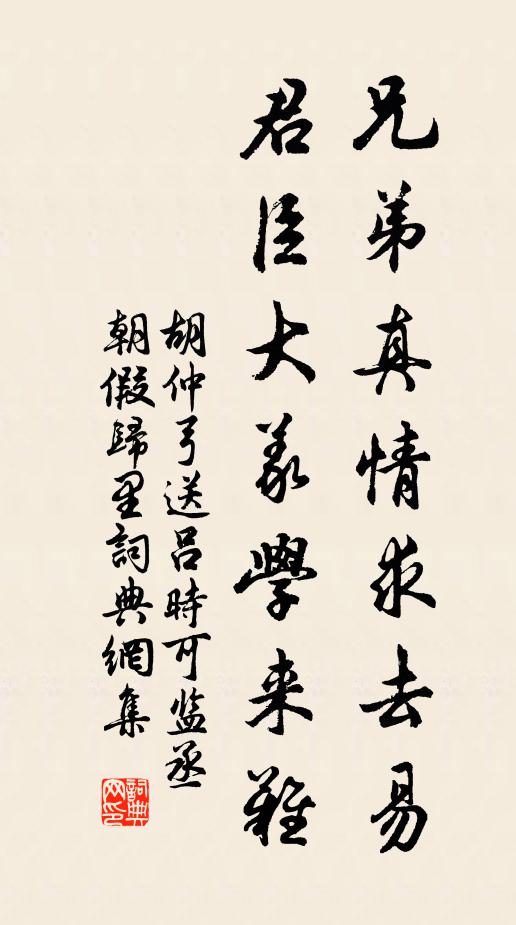 兄弟真情求去易
君臣大義學来難
胡仲弓送呂時可监丞
朝假歸里詞典網集
詞典网印